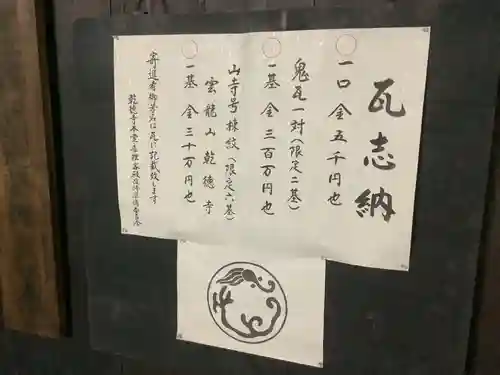 瓦志納
一口 金五千円也
鬼瓦一対(限定二基)
一基 金三百万円也
山寺号棟紋(限定六基)
雲龍山 乾徳寺
一基 金三十万円也
寄進者御芳名は瓦に記載致します
乾徳寺本堂・庫裡客殿